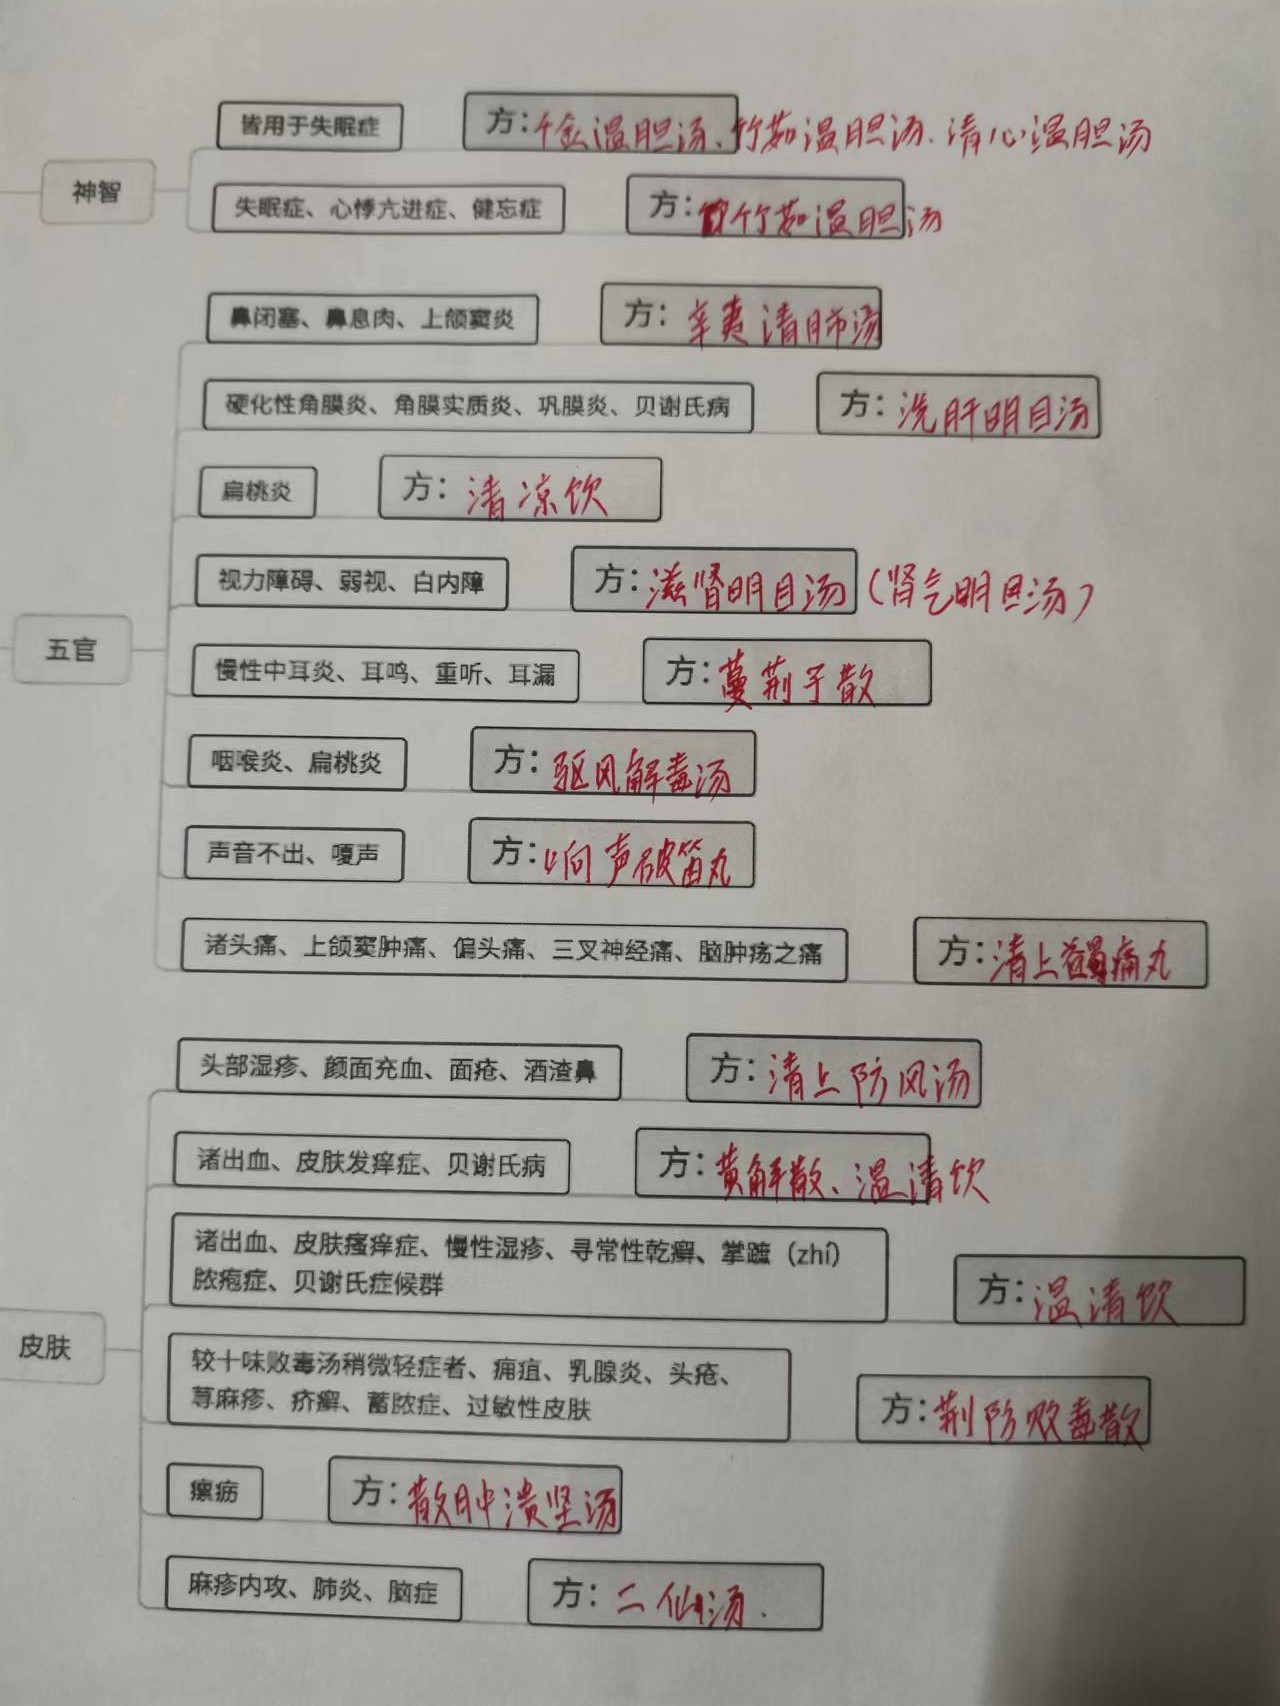 神智
皆用于失眠症 方：千金温胆汤、竹茹温胆汤、清心温胆汤
失眠症、心悸亢进症、健忘症 方：竹茹温胆汤
五官
鼻闭塞、鼻息肉、上颌窦炎 方：辛夷清肺汤
硬化性角膜炎、角膜实质炎、巩膜炎、贝谢氏病 方：洗肝明目汤
扁桃炎 方：清凉饮
视力障碍、弱视、白内障 方：滋肾明目汤（肾气明目汤）
慢性中耳炎、耳鸣、重听、耳漏 方：蔓荆子散
咽喉炎、扁桃炎 方：驱风解毒汤
声音不出、嗄声 方：响声破笛丸
诸头痛、上颌窦肿痛、偏头痛、三叉神经痛、脑肿疡之痛 方：清上蠲痛丸
皮肤
头部湿疹、颜面充血、面疮、酒渣鼻 方：清上防风汤
诸出血、皮肤发痒症、贝谢氏病 方：黄解散、温清饮
诸出血、皮肤瘙痒症、慢性湿疹、寻常性乾癣、掌蹠（zhí）
脓疱症、贝谢氏症候群 方：温清饮
较十味败毒汤稍微轻症者、痈疽、乳腺炎、头疮、
荨麻疹、疥癣、蓄脓症、过敏性皮肤 方：荆防败毒散
瘰疬 方：散肿溃坚汤
麻疹内攻、肺炎、脑症 方：二仙汤.